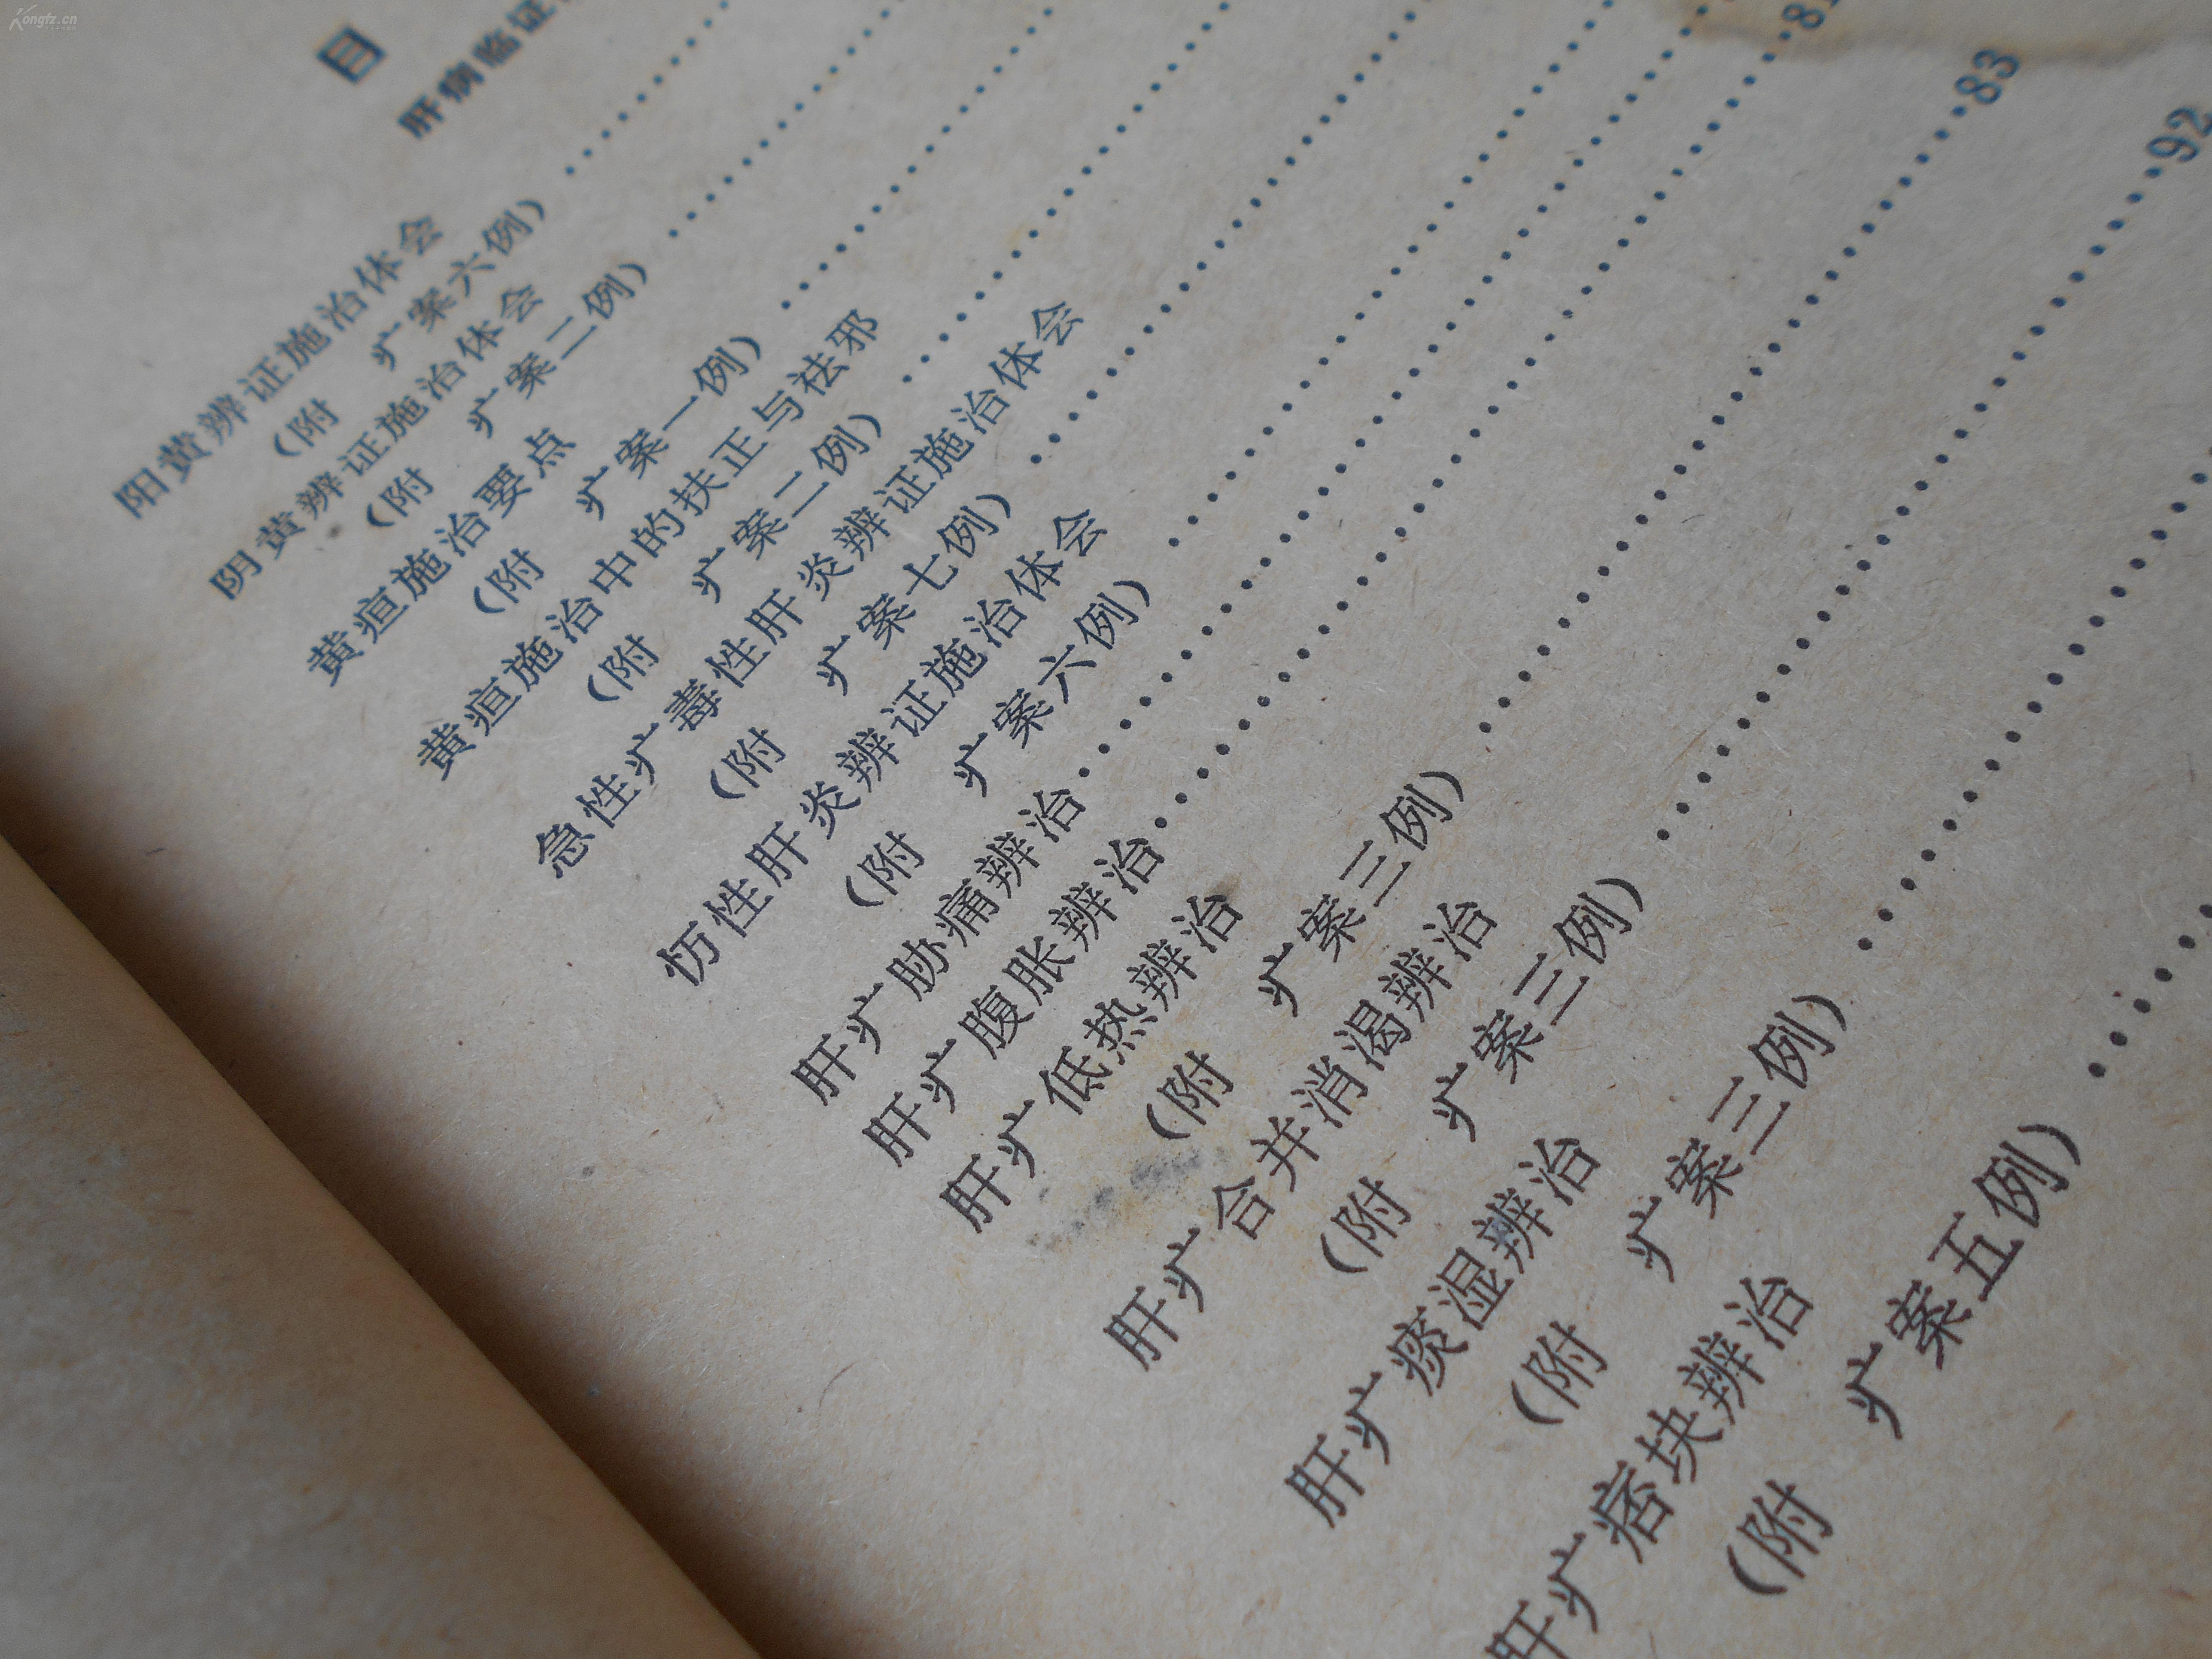 Kongfz.cn
目
肝病临证
阳黄辨证施治体会
(附 疒案六例)
阴黄辨证施治体会
(附 疒案二例)
黄疸施治要点
(附 疒案一例)
黄疸施治中的扶正与祛邪
(附 疒案二例)
急性疒毒性肝炎辨证施治体会
(附 疒案七例)
㤃性肝炎辨证施治体会
(附 疒案六例)
肝疒胁痛辨治
肝疒腹胀辨治 81
肝疒低热辨治
(附 疒案三例) 83
肝疒合并消渴辨治
(附 疒案三例) 92
肝疒痰湿辨治
(附 疒案三例)
肝疒痞块辨治
(附 疒案五例)